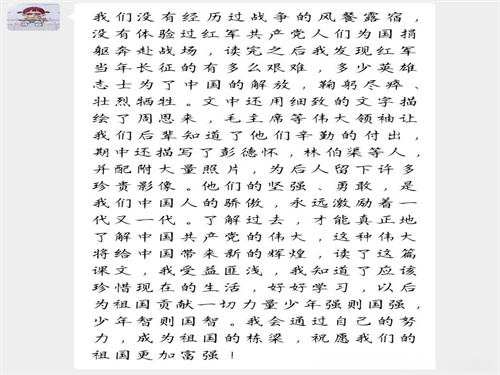 我们没有经历过战争的风餐露宿，
没有体验过红军共产党人们为国捐
躯奔赴战场，读完之后我发现红军
当年长征的有多么艰难，多少英雄
志士为了中国的解放，鞠躬尽瘁、
壮烈牺牲。文中还用细致的文字描
绘了周恩来，毛主席等伟大领袖让
我们后辈知道了他们辛勤的付出，
期中还描写了彭德怀，林伯渠等人，
并配附大量照片，为后人留下许多
珍贵影像。他们的坚强、勇敢，是
我们中国人的骄傲，永远激励着一
代又一代。了解过去，才能真正地
了解中国共产党的伟大，这种伟大
将给中国带来新的辉煌，读了这篇
课文，我受益匪浅，我知道了应该
珍惜现在的生活，好好学习，以后
为祖国贡献一切力量少年强则国强，
少年智则国智。我会通过自己的努
力，成为祖国的栋梁，祝愿我们的
祖国更加富强！